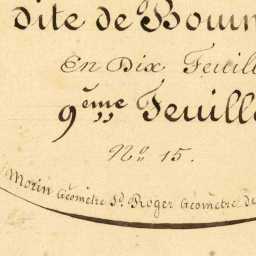 dite de
En Dix Feuill
9ème Feuille
No 15.
Morin Géomètre St. Roger Géomètre de